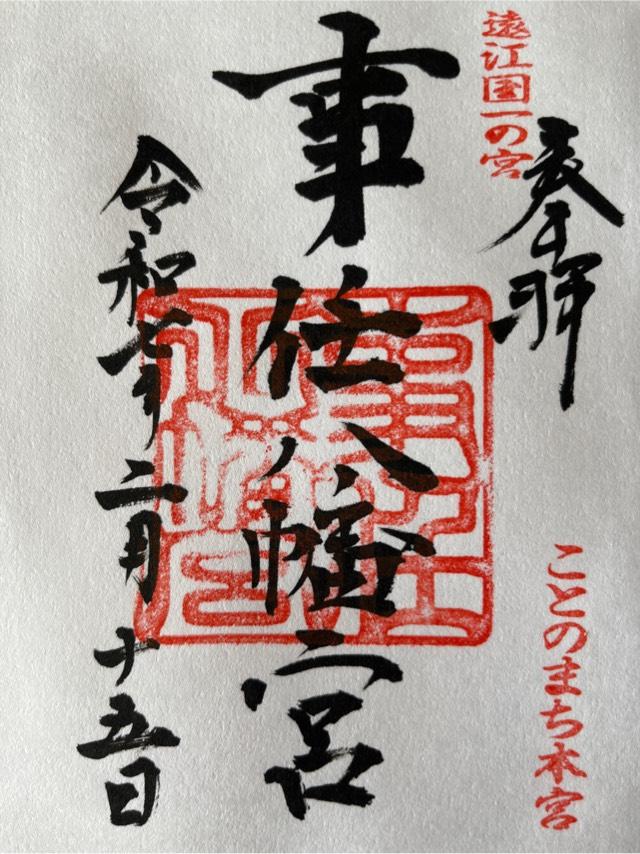 奉拝
遠江国一の宮
ことのまち本宮
事任八幡宮
令和七年二月十五日